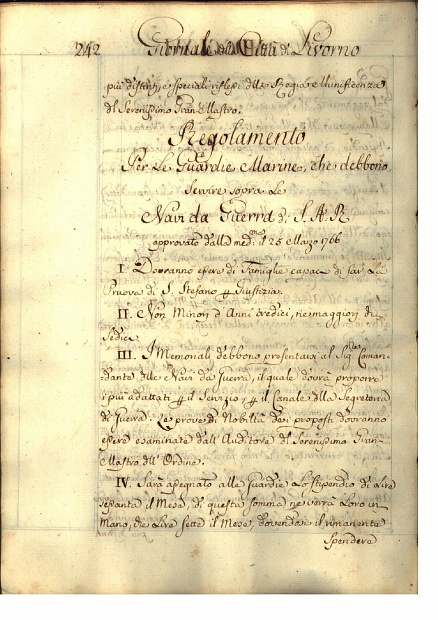 242 Giornale della Città di Livorno
più distinti, e speciali riflessi della Regia Munificenza
del Serenissimo Gran Mastro.
Regolamento
Per Le Guardie Marine, che debbono
Servire sopra Le
Navi da Guerra di S. A. R.
approvato dalla med.ma il 25 Marzo 1766
I. Dovranno essere di Famiglie capaci di far Le
Pruove di S. Stefano p Giustizia.
II. Non Minori d'Anni tredici, ne maggiori di
Sedici.
III. I Memoriali debbono presentarsi al Sig.re Coman-
dante delle Navi da Guerra, il quale dovrà proporre
i più adattati p il Servizio, p il Canale della Segreteria
di Guerra. Le prove di Nobiltà dei proposti dovranno
essere esaminate dall'Auditore del Serenissimo Gran
Mastro dell'Ordine.
IV. Sarà assegnato alle Guardie Lo Stipendio di Lire
sessanta il Mese, di questa somma ne verrà Loro in
Mano, die Lire sette il Mese, dovendosi il rimanente
Spendere